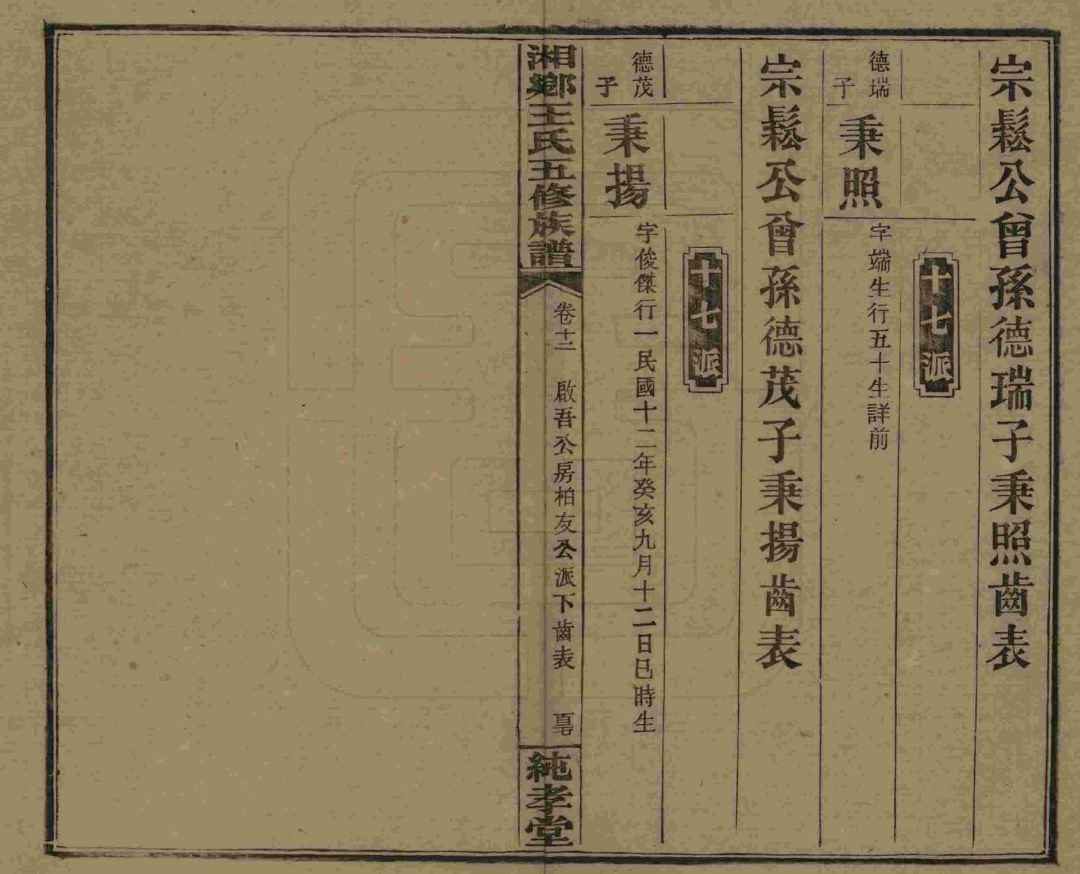 宗鬆公曾孫德瑞子秉照齒表
十七派
德瑞子
秉照
字端生行五十生詳前
宗鬆公曾孫德茂子秉揚齒表
十七派
德茂子
秉揚
字俊傑行一民國十二年癸亥九月十二日巳時生
湘鄉王氏五修族譜
卷十二
啟吾公房柏友公派下齒表
純孝堂